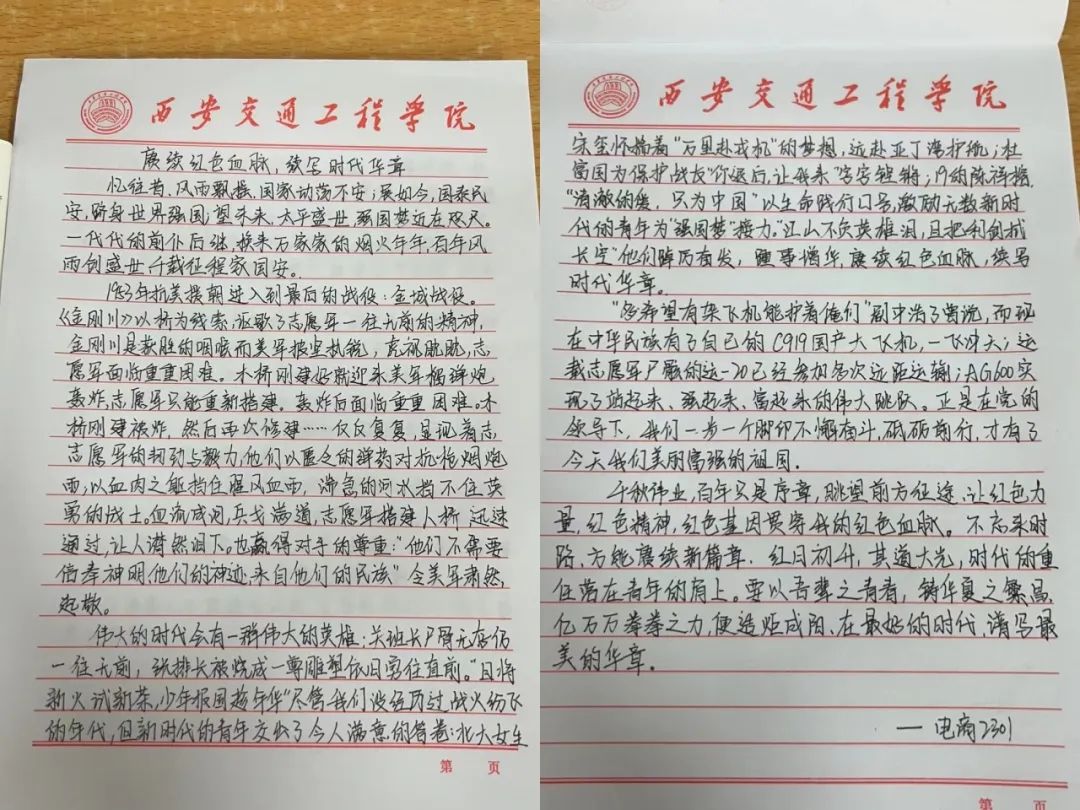 西安交通工程学院
赓续红色血脉，续写时代华章
忆往昔，风雨飘摇，国家动荡不安；展如今，国泰民
安，跻身世界强国；望未来，太平盛世，强国梦近在咫尺。
一代代的前仆后继，换来万家家的烟火年年，百年风
雨创盛世，千载征程家国安。
1953年抗美援朝进入到最后的战役：金城战役。
《金刚川》以桥为线索，讴歌了志愿军一往无前的精神，
金刚川是获胜的咽喉而美军披坚执锐，虎视眈眈，志
愿军面临重重困难。木桥刚建好就迎来美军榴弹炮
轰炸，志愿军只能重新搭建。轰炸后面临重重困难。木
桥刚建被炸，然后再次修建……反反复复，显现着志
志愿军的韧劲与毅力，他们以匮乏的弹药对抗枪烟炮
雨；以血肉之躯挡住腥风血雨，湍急的河水挡不住英
勇的战士。血流成河，兵戈满道，志愿军搭建人桥迅速
通过，让人潸然泪下。也赢得对手的尊重：“他们不需要
倚奉神明，他们的神迹，来自他们的民族”令美军肃然，
起敬。
伟大的时代会有一群伟大的英雄：关班长尸骨无存仍
一往无前，张排长被烧成一尊雕塑依旧勇往直前。“且将
新火试新茶，少年报国趁年华”尽管我们没经历过战火纷飞
的年代，但新时代的青年交出了令人满意的答卷：北大女生
第 页
西安交通工程学院
宋玺怀揣着“万里赴戎机”的梦想，远赴亚丁湾护航；杜
富国为保护战友“你退后，让我来”字字铿锵；19的陈祥榕，
“清澈的爱，只为中国”以生命践行口号，激励无数新时
代的青年为“强国梦”接力。“江山不负英雄泪，且把利剑破
长空”他们踔厉奋发，踵事增华，赓续红色血脉，续写
时代华章。
“多希望有架飞机能护着俺们”剧中浩了曾说，而现
在中华民族有了自己的C919国产大飞机，一飞冲天；运
载志愿军尸骸的运-20已经参加多次远距运输；AG600实
现了站起来、强起来、富起来的伟大跳跃。正是在党的
领导下，我们一步一个脚印不懈奋斗，砥砺前行，才有了
今天我们美丽富强的祖国。
千秋伟业，百年只是序章，眺望前方征途，让红色力
量，红色精神，红色基因贯穿我的红色血脉。不忘来时
路，方能赓续新篇章。红日初升，其道大光，时代的重
任落在青年的肩上。要以吾辈之青春，铸华夏之繁昌，
亿万万拳拳之力，便造炬成阳，在最好的时代，谱写最
美的华章。
——电商2301
第 页